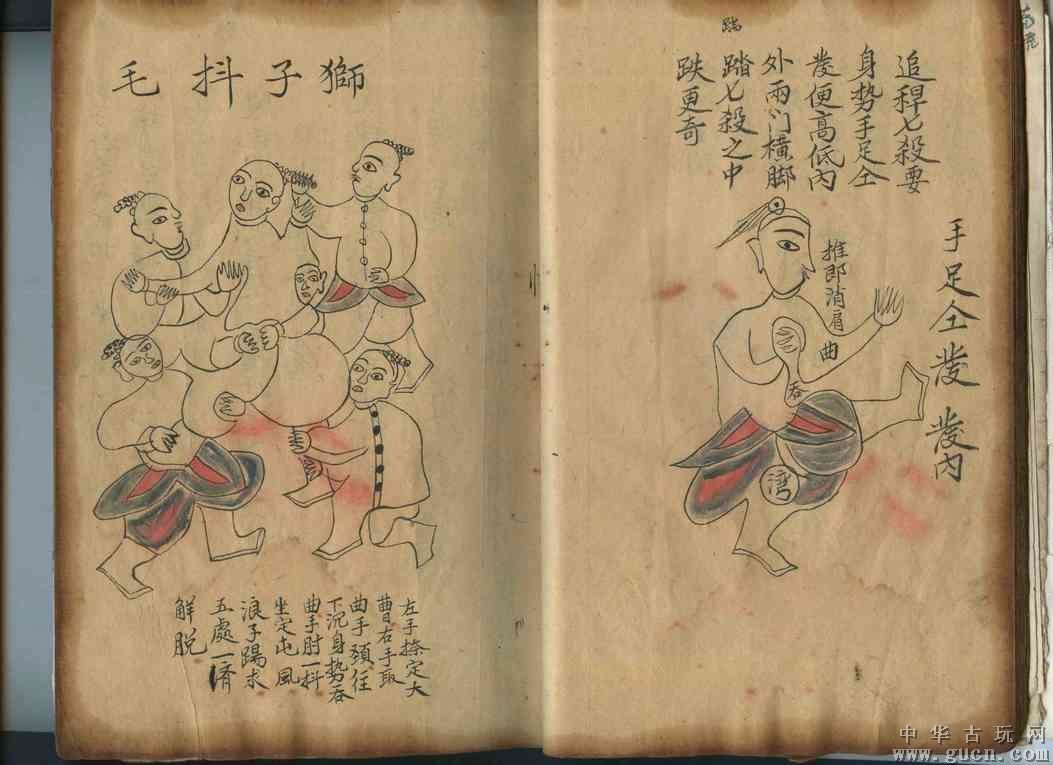 踹
追稈七殺要
身勢手足仝
發便高低內
外兩门橫脚
踏七殺之中
跌更奇
手足仝發 發內
推郎消肩
曲
吞
湾
獅子抖毛
左手捺定大
曹右手取
曲手頚住
下沉身勢吞
曲手肘一抖
坐定屯風
浪子踢求
五處一濟
解脱
中华古玩网
www.gucn.com